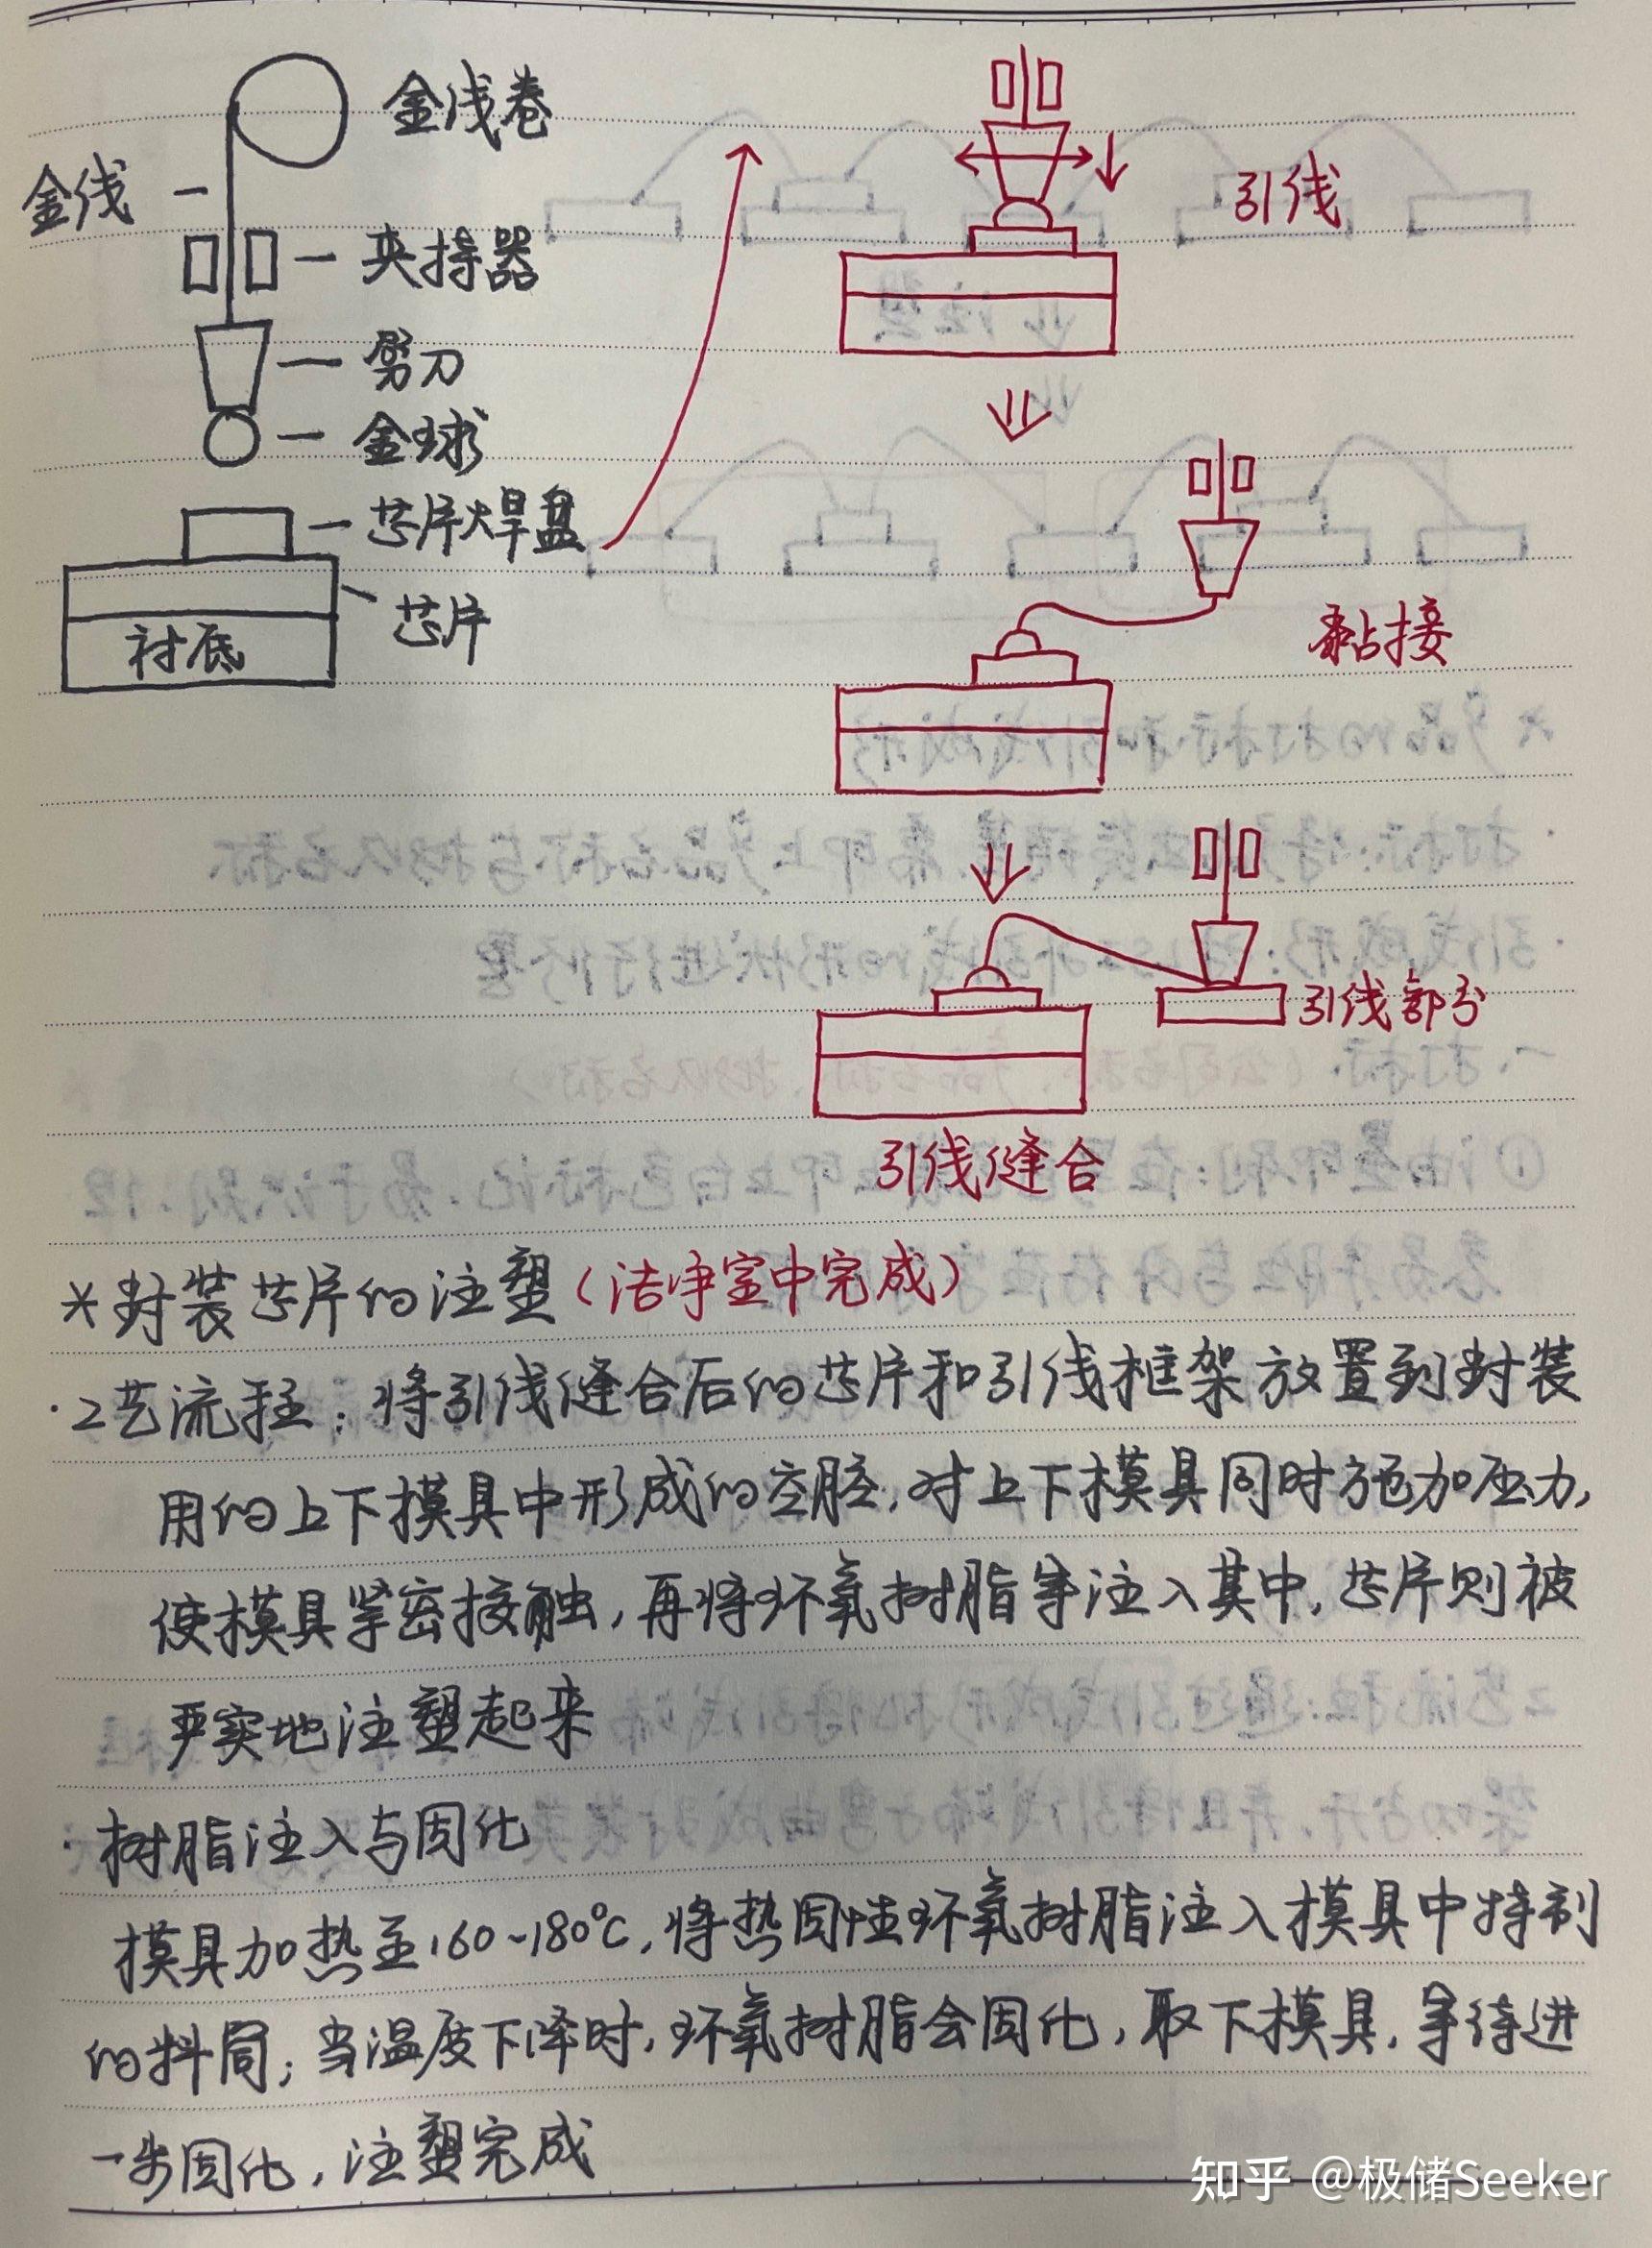 金线卷
金线
夹持器
劈刀
金球
芯片焊盘
芯片
衬底
引线
黏接
引线部分
引线缝合
*封装芯片的注塑(洁净室中完成)
·工艺流程:将引线缝合后的芯片和引线框架放置到封装
用的上下模具中形成的空腔,对上下模具同时施加压力,
使模具紧密接触,再将环氧树脂等注入其中,芯片则被
严实地注塑起来
·树脂注入与固化
模具加热至160~180℃,将热固性环氧树脂注入模具中特制
的料筒;当温度下降时,环氧树脂会固化,取下模具,等待进
一步固化,注塑完成
知乎 @极储Seeker